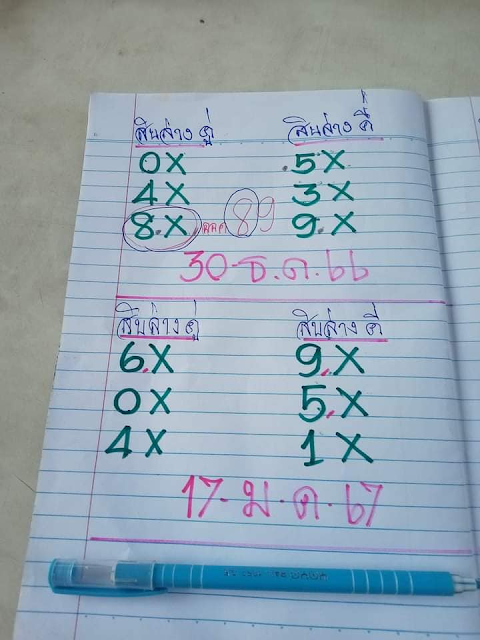 สิบล่าง คู่ สิบล่าง คี่
0X 5X
4X 3X
8.X ออก 89 9.X
30-ธ.ค.66
สิบล่าง คู่ สิบล่าง คี่
6.X 9.X
0X 5.X
4X 1X
17-ม.ค.67